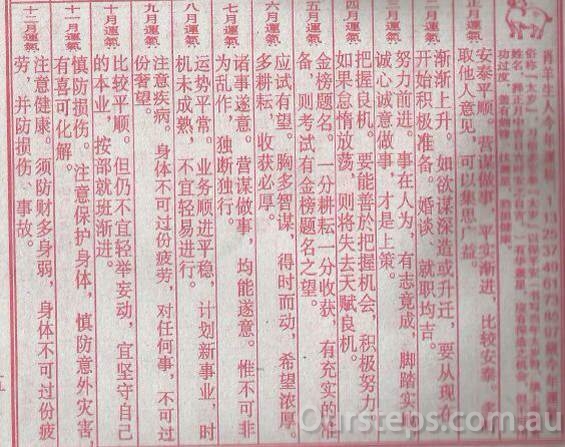 肖羊生人今年運程 1 13 25 37 49 61 73 85 97 歲今年運
正月運氣
安泰平顺。营谋做事，平实渐进，比较安泰。
取他人意见，可以集思广益。
二月運氣
渐渐上升。如欲谋深造或升迁，要从现在
开始积极准备。婚谈、就职均吉。
三月運氣
努力前进。事在人为，有志竟成，脚踏实
诚心诚意做事，才是上策。
四月運氣
把握良机。要能善於把握机会，积极努力
如果怠惰放荡，则将失去天赋良机。
五月運氣
金榜题名。一分耕耘一分收获，有充实的准
备，则考试有金榜题名之望。
六月運氣
应试有望。胸多智谋，得时而动，希望浓厚。
多耕耘，收获必厚。
七月運氣
诸事遂意。营谋做事，均能遂意。惟不可非
为乱作，独断独行。
八月運氣
运势平常。业务顺进平稳，计划新事业，时
机未成熟，不宜轻易进行。
九月運氣
注意疾病。身体不可过份疲劳，对任何事，不可过
份奢望。
十月運氣
比较平顺。但仍不宜轻举妄动，宜坚守自己
的本业，按部就班渐进。
十一月運氣
慎防损伤。注意保护身体，慎防意外灾害
有喜可化解。
十二月運氣
注意健康。须防财多身弱，身体不可过份疲
劳，并防损伤、事故。
Oursteps.com.au